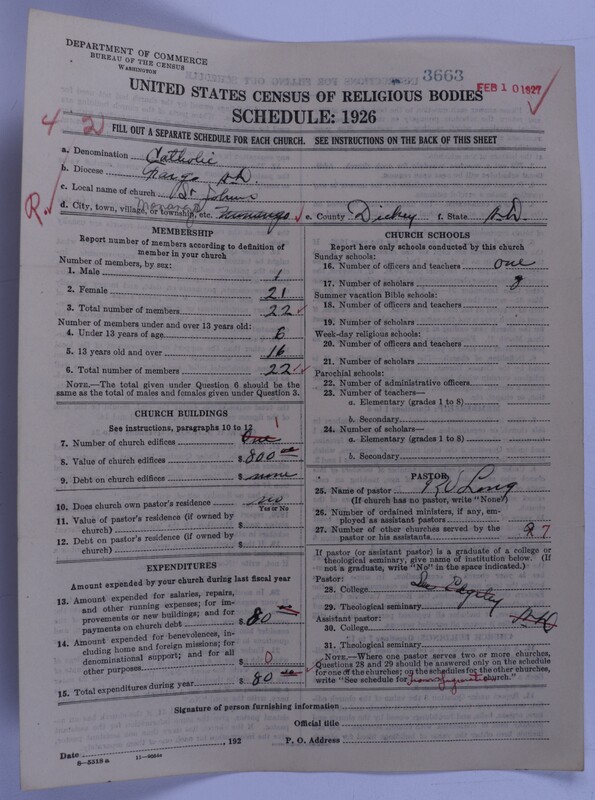 DEPARTMENT OF COMMERCE
BUREAU OF THE CENSUS
WASHINGTON
3663
FEB 10 1927
UNITED STATES CENSUS OF RELIGIOUS BODIES
SCHEDULE: 1926
4 2
FILL OUT A SEPARATE SCHEDULE FOR EACH CHURCH. SEE INSTRUCTIONS ON THE BACK OF THIS SHEET
a. Denomination Catholic
b. Diocese Fargo N.D.
c. Local name of church St Johns
R.
d. City, town, village, or township, etc. Monango Monango e. County Dickey f. State N.D.
MEMBERSHIP
Report number of members according to definition of
member in your church
Number of members, by sex:
1. Male 1
2. Female 21
3. Total number of members 22
Number of members under and over 13 years old:
4. Under 13 years of age 6
5. 13 years old and over 16
6. Total number of members 22
NOTE.—The total given under Question 6 should be
the same as the total of males and females given under Question 3.
CHURCH BUILDINGS
See instructions, paragraphs 10 to 12
7. Number of church edifices One 1
8. Value of church edifices $ 800
9. Debt on church edifices $ none
10. Does church own pastor's residence no
Yes or No
11. Value of pastor's residence (if owned by
church) $
12. Debt on pastor's residence (if owned by
church) $
EXPENDITURES
Amount expended by your church during last fiscal year
13. Amount expended for salaries, repairs,
and other running expenses; for im-
provements or new buildings; and for
payments on church debt $ 80
14. Amount expended for benevolences, in-
cluding home and foreign missions; for
denominational support; and for all
other purposes $ 0
15. Total expenditures during year $ 80
CHURCH SCHOOLS
Report here only schools conducted by this church
Sunday schools:
16. Number of officers and teachers one
17. Number of scholars 8
Summer vacation Bible schools:
18. Number of officers and teachers
19. Number of scholars
Week-day religious schools:
20. Number of officers and teachers
21. Number of scholars
Parochial schools:
22. Number of administrative officers
23. Number of teachers—
a. Elementary (grades 1 to 8)
b. Secondary
24. Number of scholars—
a. Elementary (grades 1 to 8)
b. Secondary
PASTOR
25. Name of pastor Long
(If church has no pastor, write "None")
26. Number of ordained ministers, if any, em-
ployed as assistant pastors
27. Number of other churches served by the
pastor or his assistants 7
If pastor (or assistant pastor) is a graduate of a college or
theological seminary, give name of institution below. (If
not a graduate, write "No" in the space indicated.)
Pastor:
28. College
29. Theological seminary
Assistant pastor:
30. College
31. Theological seminary
NOTE.—Where one pastor serves two or more churches,
Questions 28 and 29 should be answered only on the schedule
for one of the churches; on the schedules for the other churches,
write "See schedule for church."
Signature of person furnishing information
Official title
Date , 192 P. O. Address
8—5518a